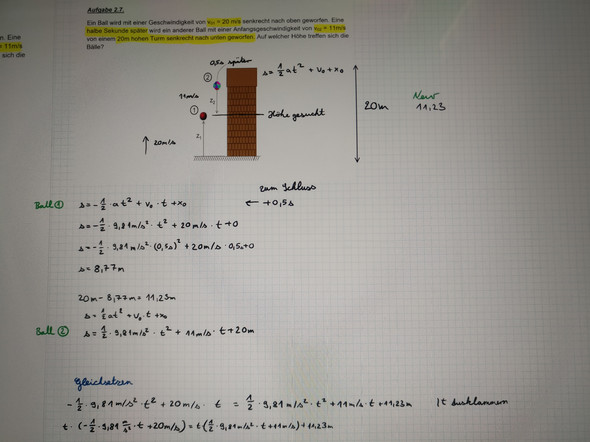 Aufgabe 2.7.
Ein Ball wird mit einer Geschwindigkeit von v₀₁ = 20 m/s senkrecht nach oben geworfen. Eine
halbe Sekunde später wird ein anderer Ball mit einer Anfangsgeschwindigkeit von v₀₂ = 11m/s
von einem 20m hohen Turm senkrecht nach unten geworfen. Auf welcher Höhe treffen sich die
Bälle?
n. Eine
= 11m/s
sich die
0,5s später
s = 1/2 at² + v₀ + x₀
②
11m/s
z₂
①
Höhe gesucht
z₁
20m/s
20m
New
11,23
zum Schluss
Ball ① s = -1/2 · at² + v₀ · t + x₀ ← +0,5s
s = -1/2 · 9,81m/s² · t² + 20m/s · t + 0
s = -1/2 · 9,81m/s² · (0,5s)² + 20m/s · 0,5s+0
s = 8,77m
20m - 8,77m = 11,23m
s = 1/2 at² + v₀ · t + x₀
Ball ② s = 1/2 · 9,81m/s² · t² + 11m/s · t + 20m
Gleichsetzen
-1/2 · 9,81m/s² · t² + 20m/s · t = 1/2 · 9,81m/s² · t² + 11m/s · t + 11,23m | t ausklammern
t · (-1/2 · 9,81 m/s² · t + 20m/s) = t (1/2 · 9,81m/s² · t + 11m/s) + 11,23m